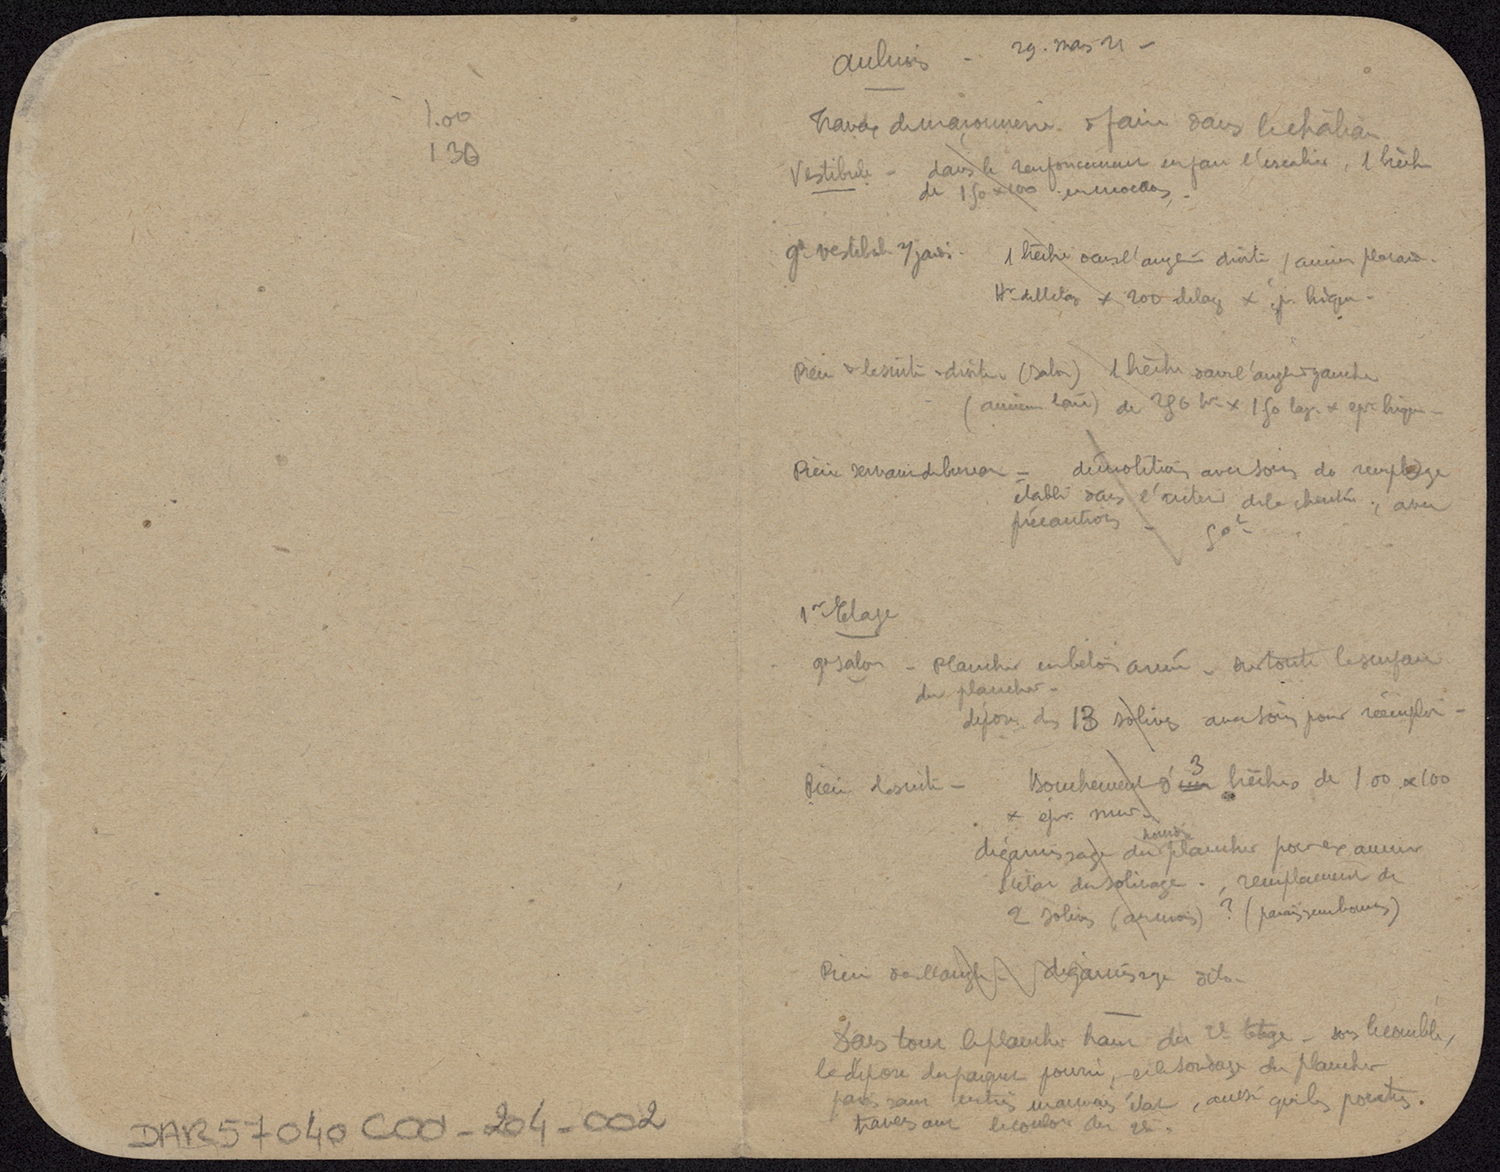 1.00
130
DAR57040COO-204-002
Aulnois - 29. mars 21 -
Travx de maçonnerie à faire dans le château
Vestibule - dans le renfoncement en face l'escalier, 1 brèche
de 150 x 100 en moellons.
gd vestibule s/ jardin. 1 brèche dans l'angle droite / ancien placard.
x 200 de large x ép. brique -
Pièce à la suite à droite (salon) 1 brèche dans l'angle gauche
de 250 hr x 150 larg. x epr brique -
Pièce démolition avec soin du remplage
établi dans l'intérieur de la cheminée, avec
précautions -
1er Etage
gd salon - Plancher en béton armé - sur toute la surface
du plancher -
dépose des 13 solives avec soin pour réemploi -
Pièce à la suite - Bouchement d' 3 brèches de 100 x 100
x epr. mur -
dégarnissage du plancher pour examiner
l'état du solivage. , remplacement de
2 solives ( ) ? (paraissent bonnes)
Pièce dans l'angle - dégarnissage dito -
Dans tout le plancher haut du 2e Etage - sous le comble,
la dépose du parquet pourri, et le sondage du plancher
en très mauvais état, ainsi que les poutres.
traversant le couloir du 2e.